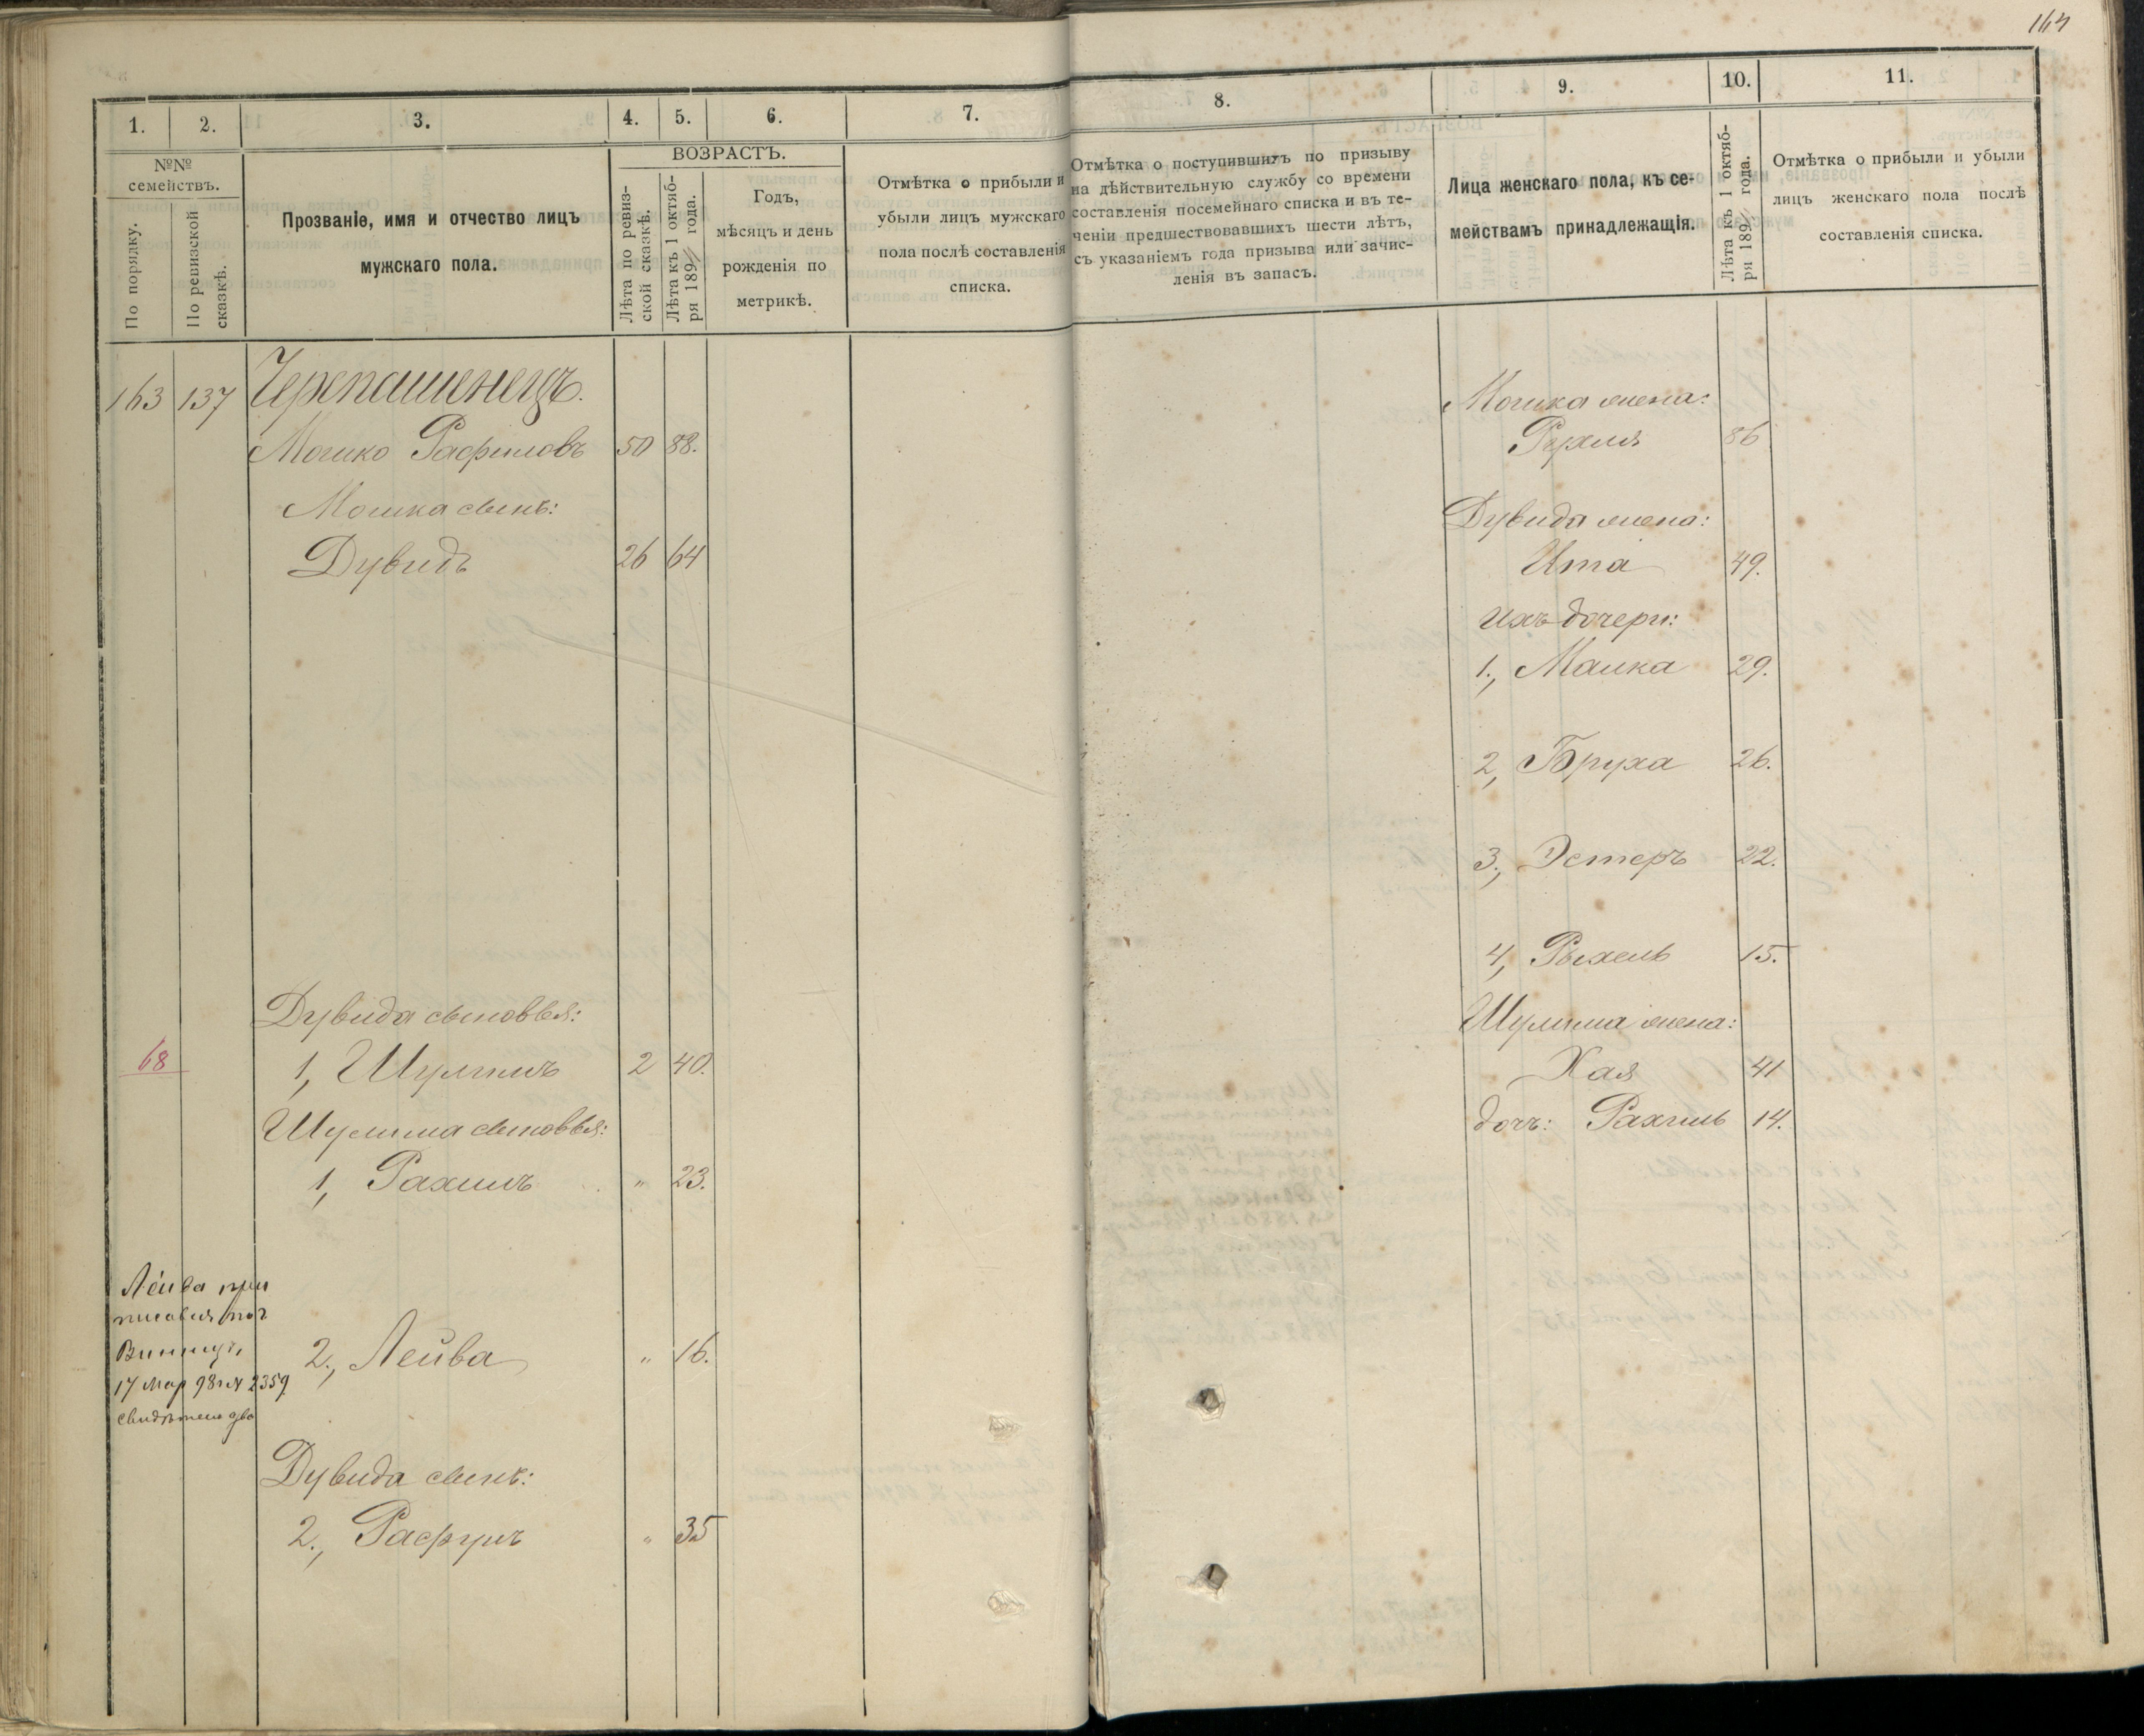 164
1.
2.
3.
4.
5.
6.
7.
8.
9.
10.
11.
№№
семействъ.
По порядку.
По ревизской
сказкѣ.
Прозваніе, имя и отчество лицъ
мужскаго пола.
ВОЗРАСТЪ.
Лѣта по ревиз-
ской сказкѣ.
Лѣта къ 1 октяб-
ря 189 года.
Годъ,
мѣсяцъ и день
рожденія по
метрикѣ.
Отмѣтка о прибыли и
убыли лицъ мужскаго
пола послѣ составленія
списка.
Отмѣтка о поступившихъ по призыву
на дѣйствительную службу со времени
составленія посемейнаго списка и въ те-
ченіи предшествовавшихъ шести лѣтъ,
съ указаніемъ года призыва или зачис-
ленія въ запасъ.
Лица женскаго пола, къ се-
мействамъ принадлежащія.
Лѣта къ 1 октяб-
ря 189 года.
Отмѣтка о прибыли и убыли
лицъ женскаго пола послѣ
составленія списка.
163 137 Черепашенецъ.
Мошко Расфиловъ 50 88.
Мошка сынъ:
Дувидъ 26 64
Дувида сыновья:
68 1, Шулимъ 2 40.
Шулима сыновья:
1, Рахмилъ " 23.
Лейба при
писался по г
Винницѣ,
17 Мар 98 г № 2359
2., Лейба " 16.
Дувида сынъ:
2., Расфулъ " 35
Мошка жена:
Рухля 86
Дувида жена:
Ита 49.
Ихъ дочери:
1., Малка 29.
2, Бруха 26.
3., Эстеръ 22.
4, Рыхель 15.
Шулима жена:
Хая 41
дочь: Рахиль 14.